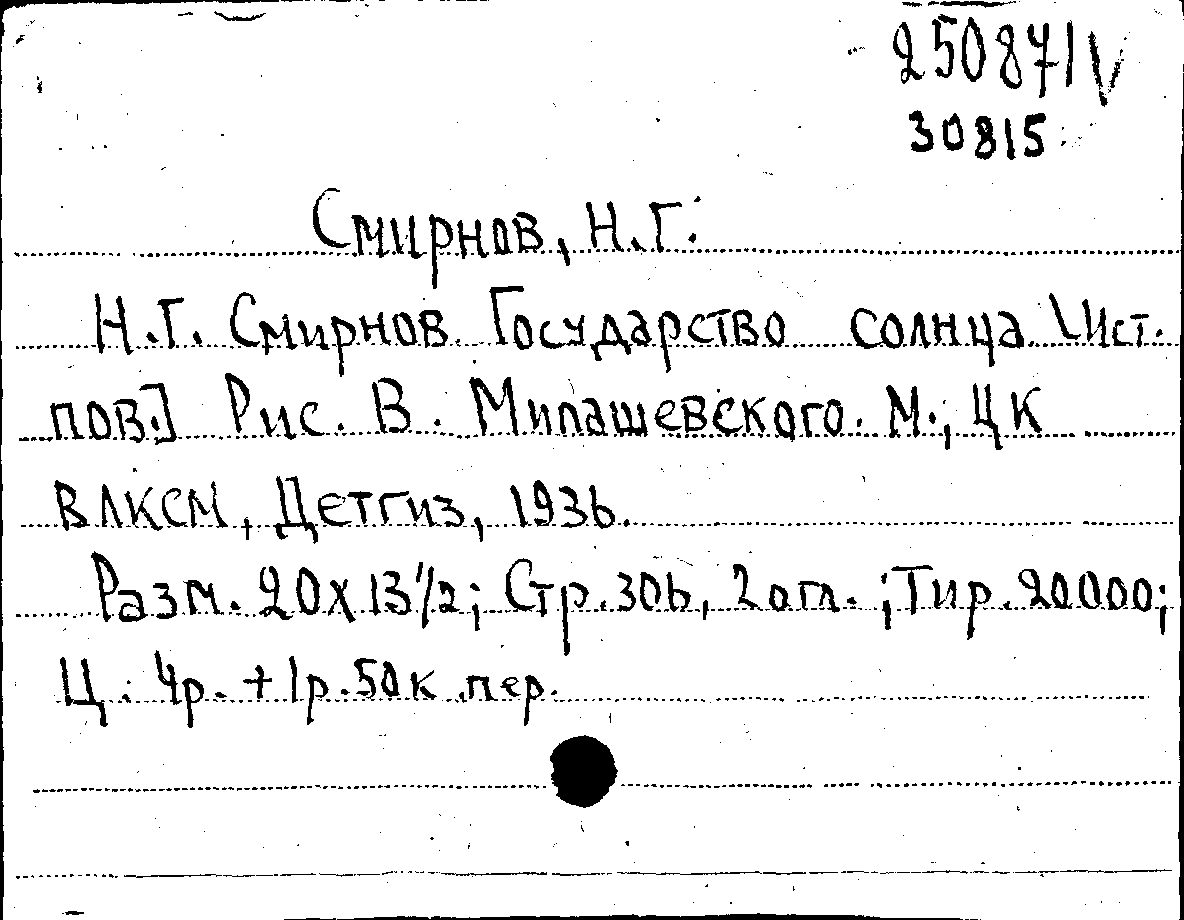 250871 V
30815
Смирнов, Н.Г.
Н.Г. Смирнов. Государство солнца [Ист.
пов.] Рис. В. Милашевского. М., ЦК
ВЛКСМ, Детгиз, 1936.
Разм. 20х13 1/2; Стр. 306, 2 огл.; Тир. 20000;
Ц. 4р. + 1р. 50к пер.